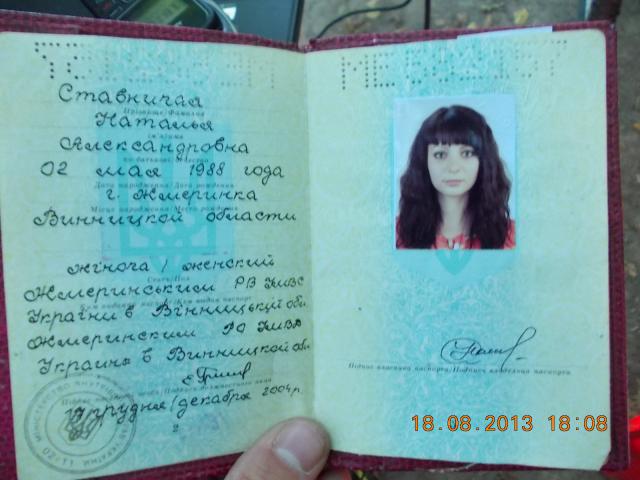 Ставничая
Прізвище/Фамилия
Наталья
ім'я/имя
Александровна
по батькові/отчество
02 мая 1988 года
Дата народження/Дата рождения
г. Жмеринка
Місце народження/Место рождения
Винницкой области
жіноча / женский
Стать/Пол
Жмеринським РВ УМВС
Ким видано паспорт/Кем выдан паспорт
України в Вінницькій обл.
Жмеринским РО УМВД
Украины в Винницкой обл.
грудня/декабря 2004 р.
2
МІНІСТЕРСТВО ВНУТРІШНІХ
Підпис власника паспорта/Подпись владельца паспорта
18.08.2013 18:08